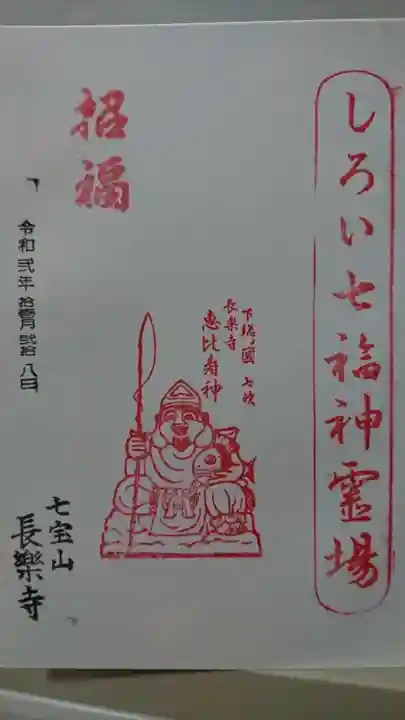 しろい七福神霊場
下総ノ國 七次
長楽寺
恵比寿神
招福
七宝山
長樂寺
令和弐年 拾壹月 弐拾八日